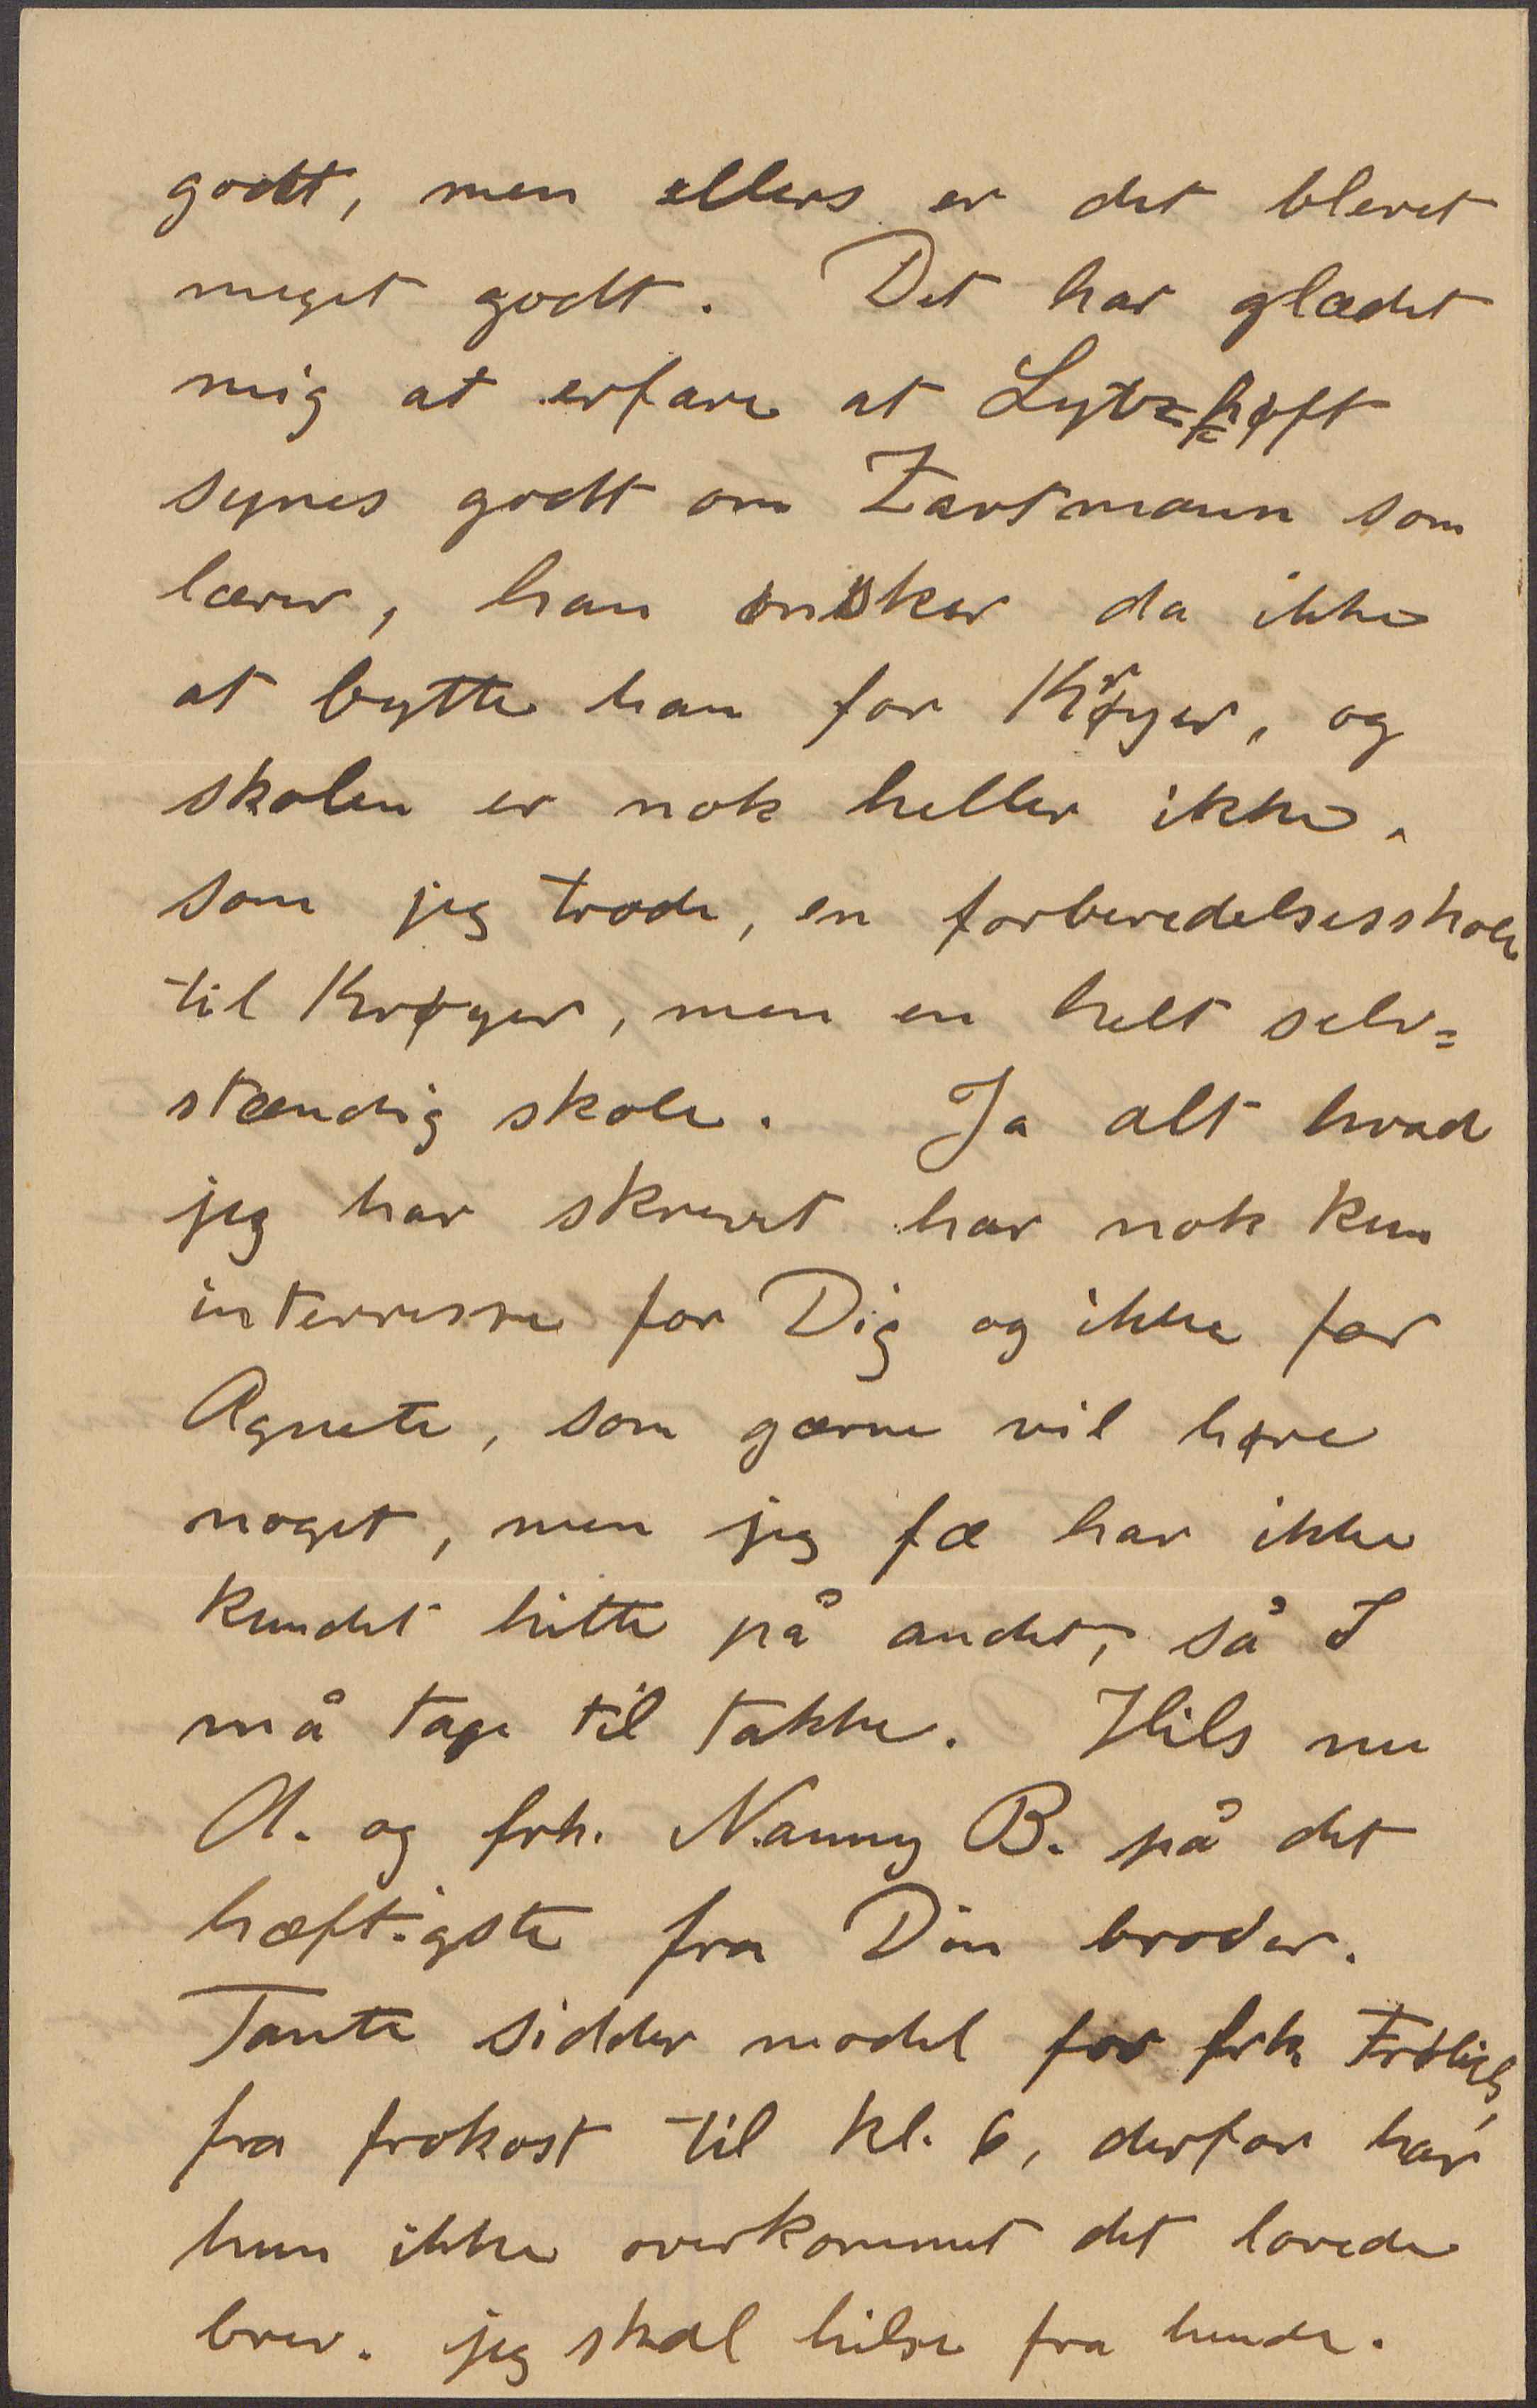 godt, men ellers er det blevet
meget godt. Det har glædet
mig at erfare at Lytzhøft
synes godt om Zartmann som
lærer, han ønsker da ikke
at bytte ham for Krøyer, og
skolen er nok heller ikke,
som jeg trode, en forberedelsesskole
til Krøyer, men en helt selv=
stændig skole. Ja alt hvad
jeg har skrevet har nok kun
interresse for Dig og ikke for
Agnete, som gærne vil høre
noget, men jeg fæ har ikke
kundet hitte på andet, så I
må tage til takke. Hils nu
A. og frk. Nanny B. på det
hæftigste fra Din broder.
Tante sidder model for frk Frølich,
fra frokost til kl. 6, derfor har
hun ikke overkommet det lovede
brev. jeg skal hilse fra hende.